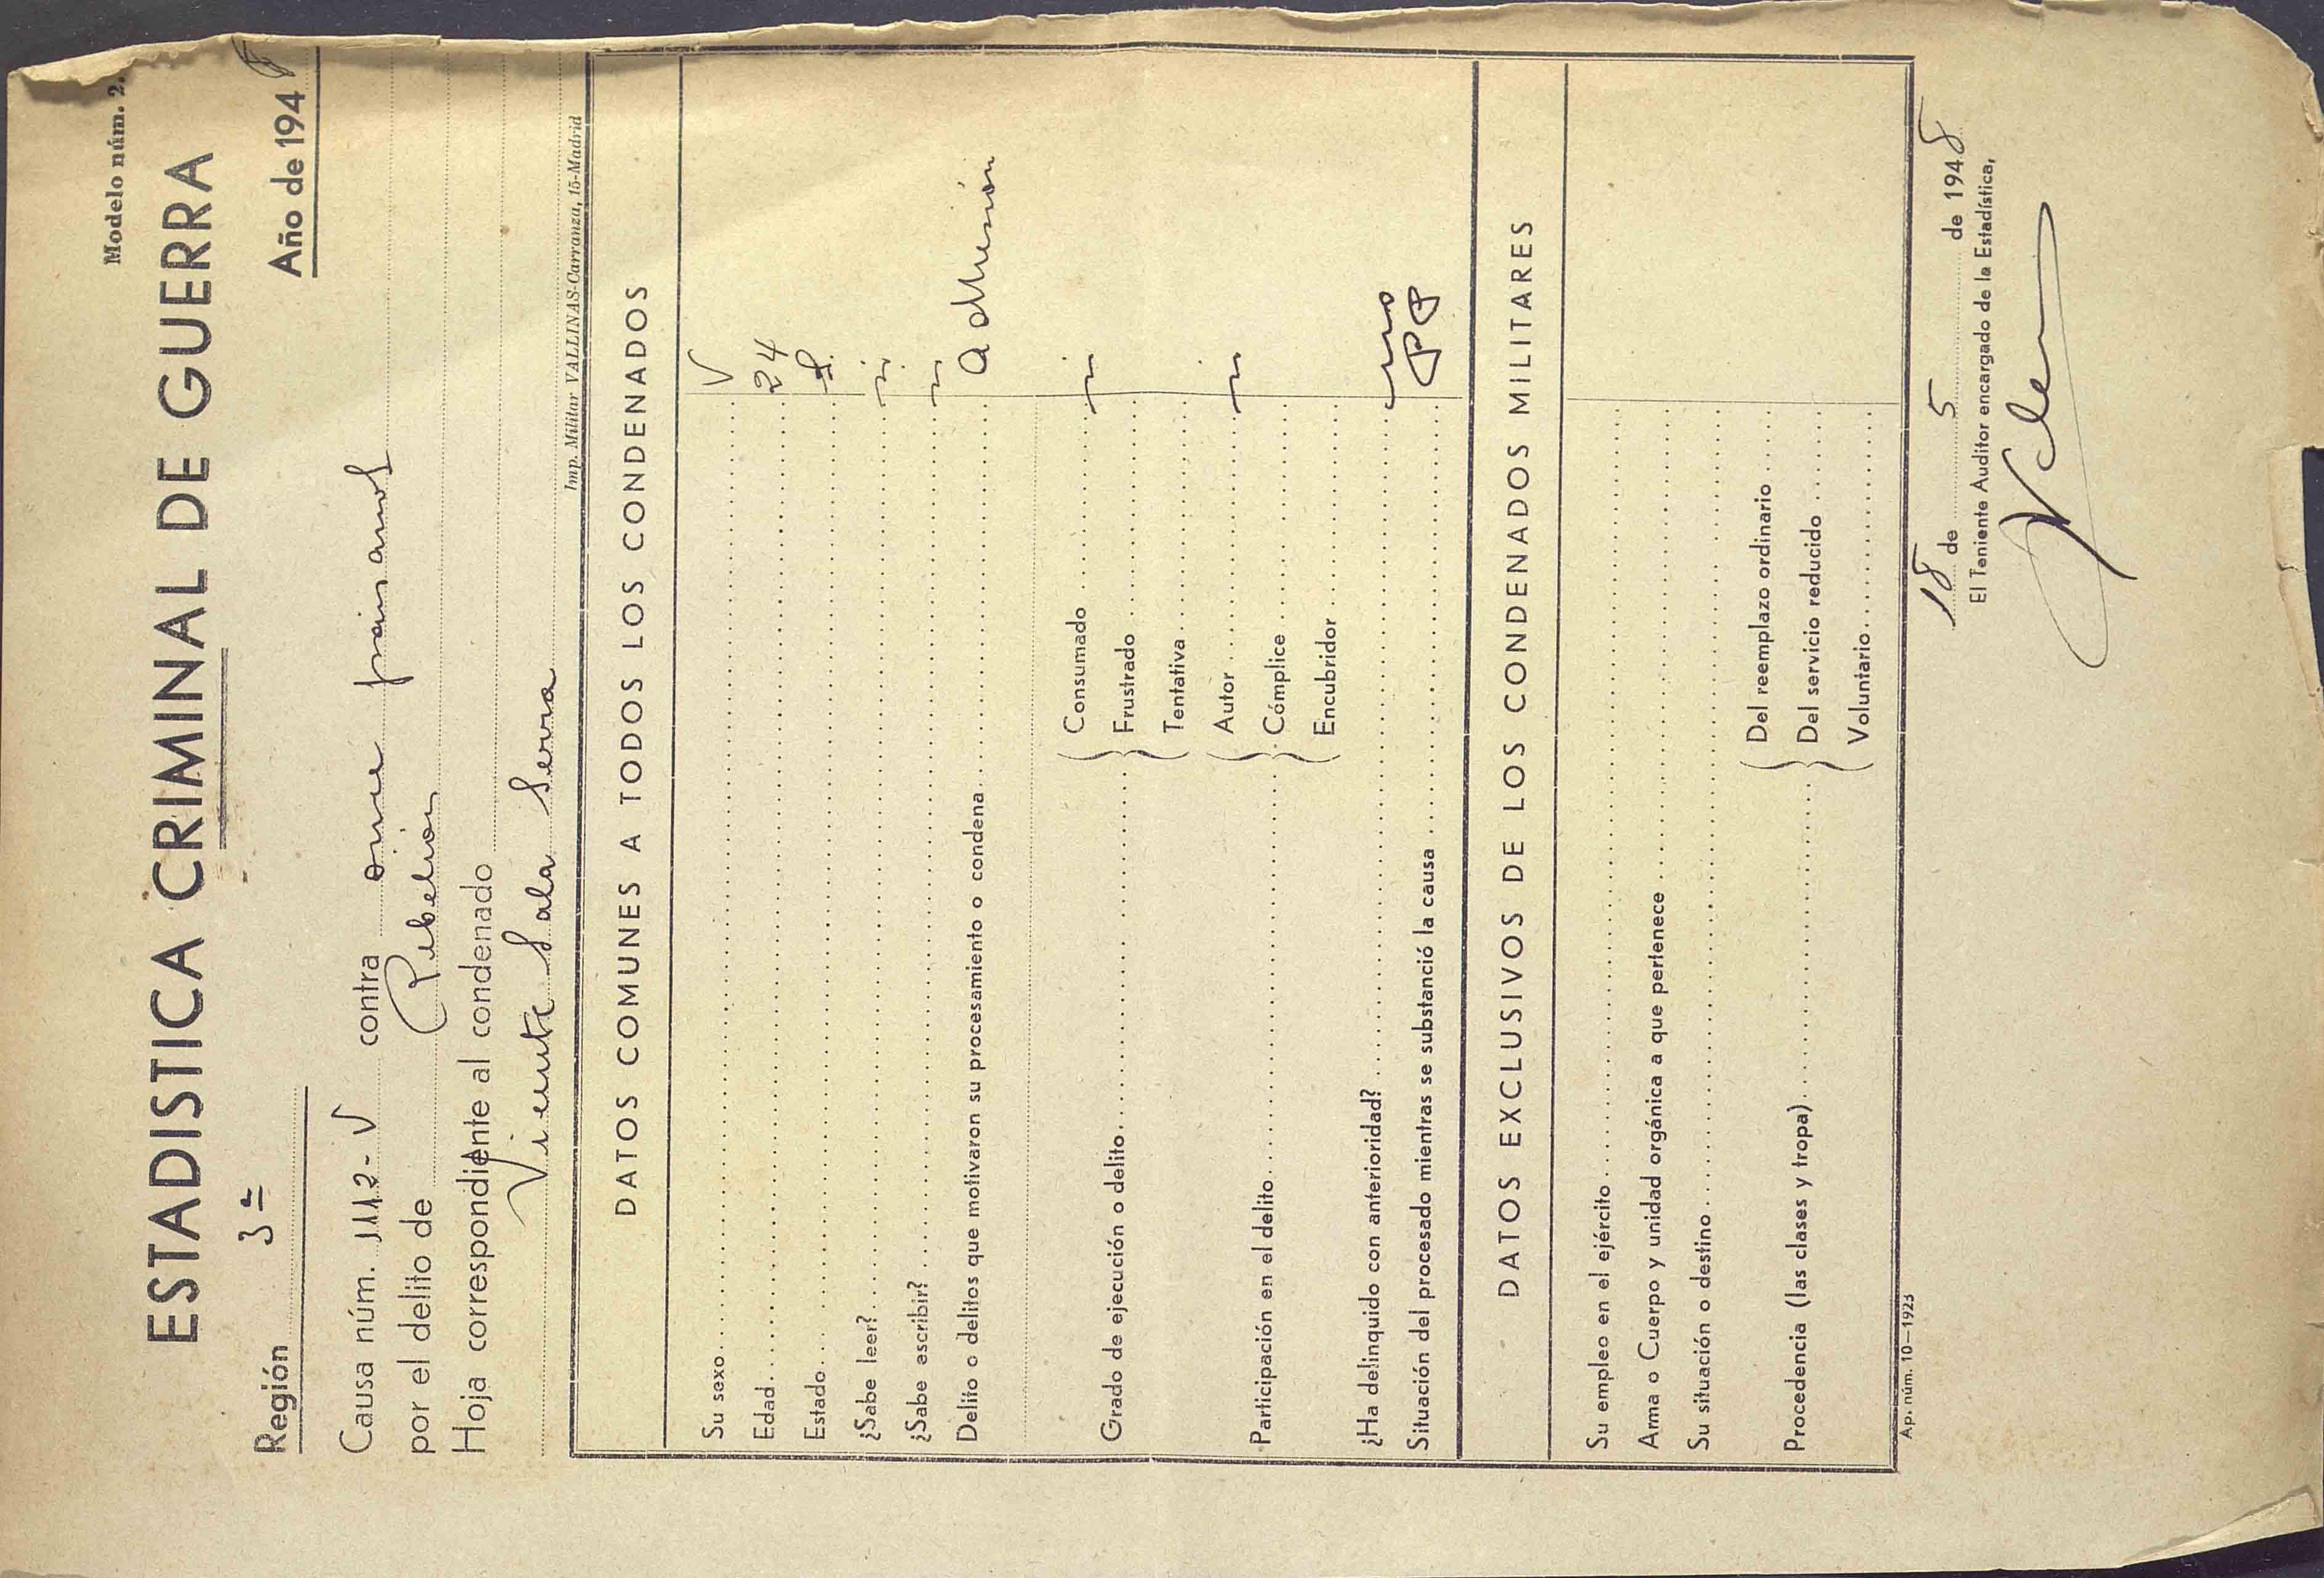 Modelo núm. 2.
ESTADISTICA CRIMINAL DE GUERRA
Región 3ª
Año de 194
Causa núm. 1112-V contra once paisanos
por el delito de Rebelion
Hoja correspondiente al condenado
Vicente Sala Serra
Imp. Militar VALLINAS-Carranza, 15-Madrid
DATOS COMUNES A TODOS LOS CONDENADOS
Su sexo V
Edad 24
Estado S.
¿Sabe leer? si
¿Sabe escribir? si
Delito o delitos que motivaron su procesamiento o condena adhesión
Grado de ejecución o delito
Consumado si
Frustrado
Tentativa
Participación en el delito
Autor si
Cómplice
Encubridor
¿Ha delinquido con anterioridad? no
Situación del procesado mientras se substanció la causa PP
DATOS EXCLUSIVOS DE LOS CONDENADOS MILITARES
Su empleo en el ejército
Arma o Cuerpo y unidad orgánica a que pertenece
Su situación o destino
Procedencia (las clases y tropa)
Del reemplazo ordinario
Del servicio reducido
Voluntario
Ap. núm. 10—1923
18 de 5 de 1948
El Teniente Auditor encargado de la Estadística,